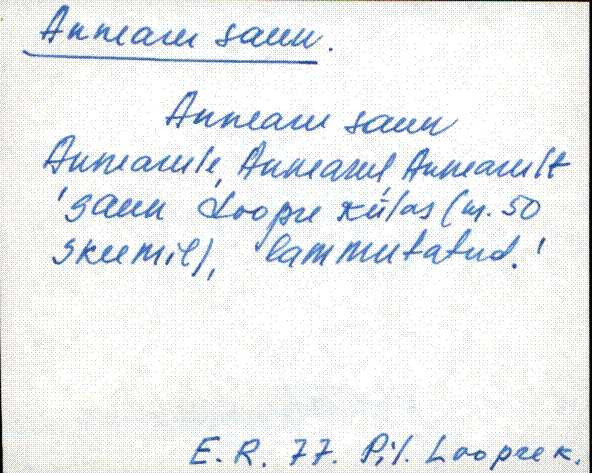 Annearu saun.
Annearu saun
Annearule, Annearul, Annearult
'saun Loopre külas (nr. 50
skeemil), lammutatud.'
E. R. 77. Pil. Loopre k.